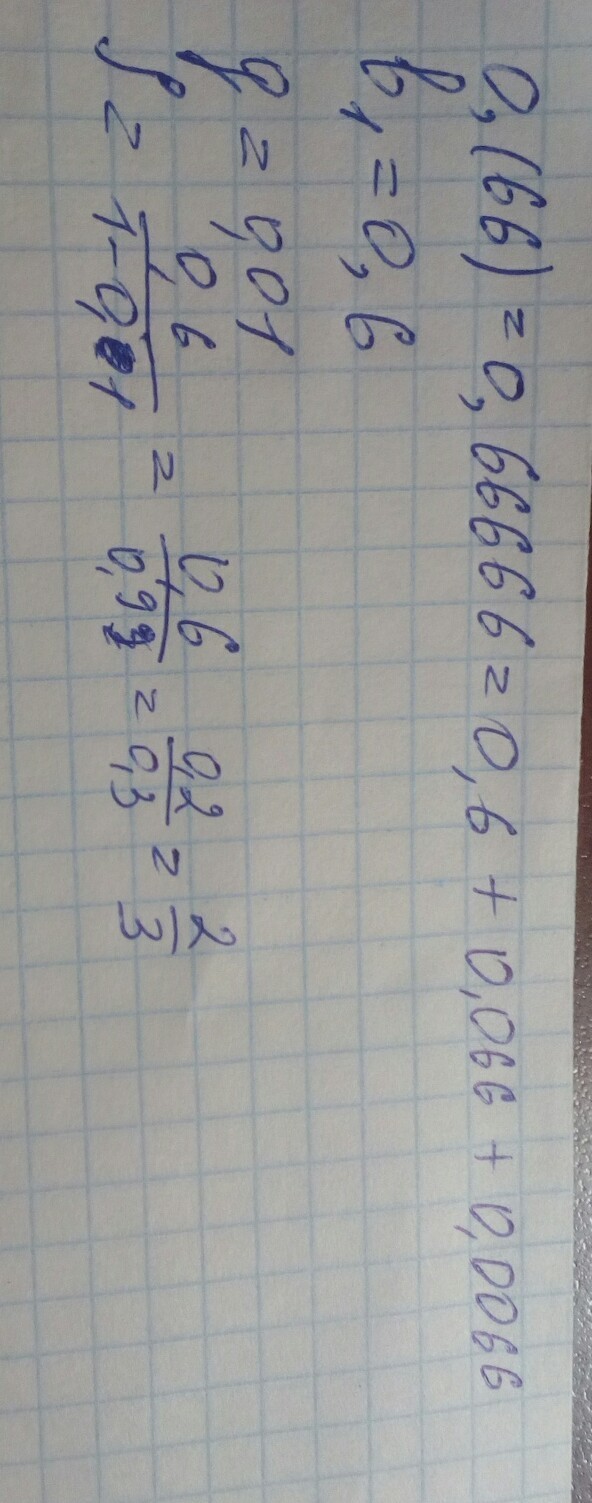 0,(66) = 0,66666 = 0,6 + 0,066 + 0,0066
b₁ = 0,6
q = 0,01
S = 0,6/1-0,1 = 0,6/0,9 = 0,2/0,3 = 2/3